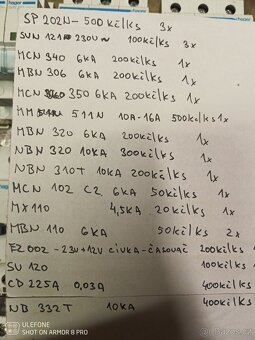 hager
SP 202N - 500 Kč/ks 3x
SVN 121 - 230V~ 100 Kč/ks 3x
MCN 340 6KA 200 Kč/ks 1x
MBN 306 6KA 200 Kč/ks 1x
MCN 350 6KA 200 Kč/ks 1x
MM 511N 10A-16A 500 Kč/ks 1x
MBN 320 6KA 200 Kč/ks 1x
NBN 320 10KA 300 Kč/ks 1x
NBN 310T 10KA 200 Kč/ks 1x
MCN 102 C2 6KA 50 Kč/ks 1x
MX 110 4,5KA 20 Kč/ks 1x
MBN 110 6KA 50 Kč/ks 2x
EZ 002 - 230+12V CÍVKA - ČASOVAČ 200 Kč/
SU 120 100 Kč/ks
CD 225A 0,03A 400 Kč/ks
NB 332T 10KA 400 Kč/ks
ULEFONE
SHOT ON ARMOR 8 PRO